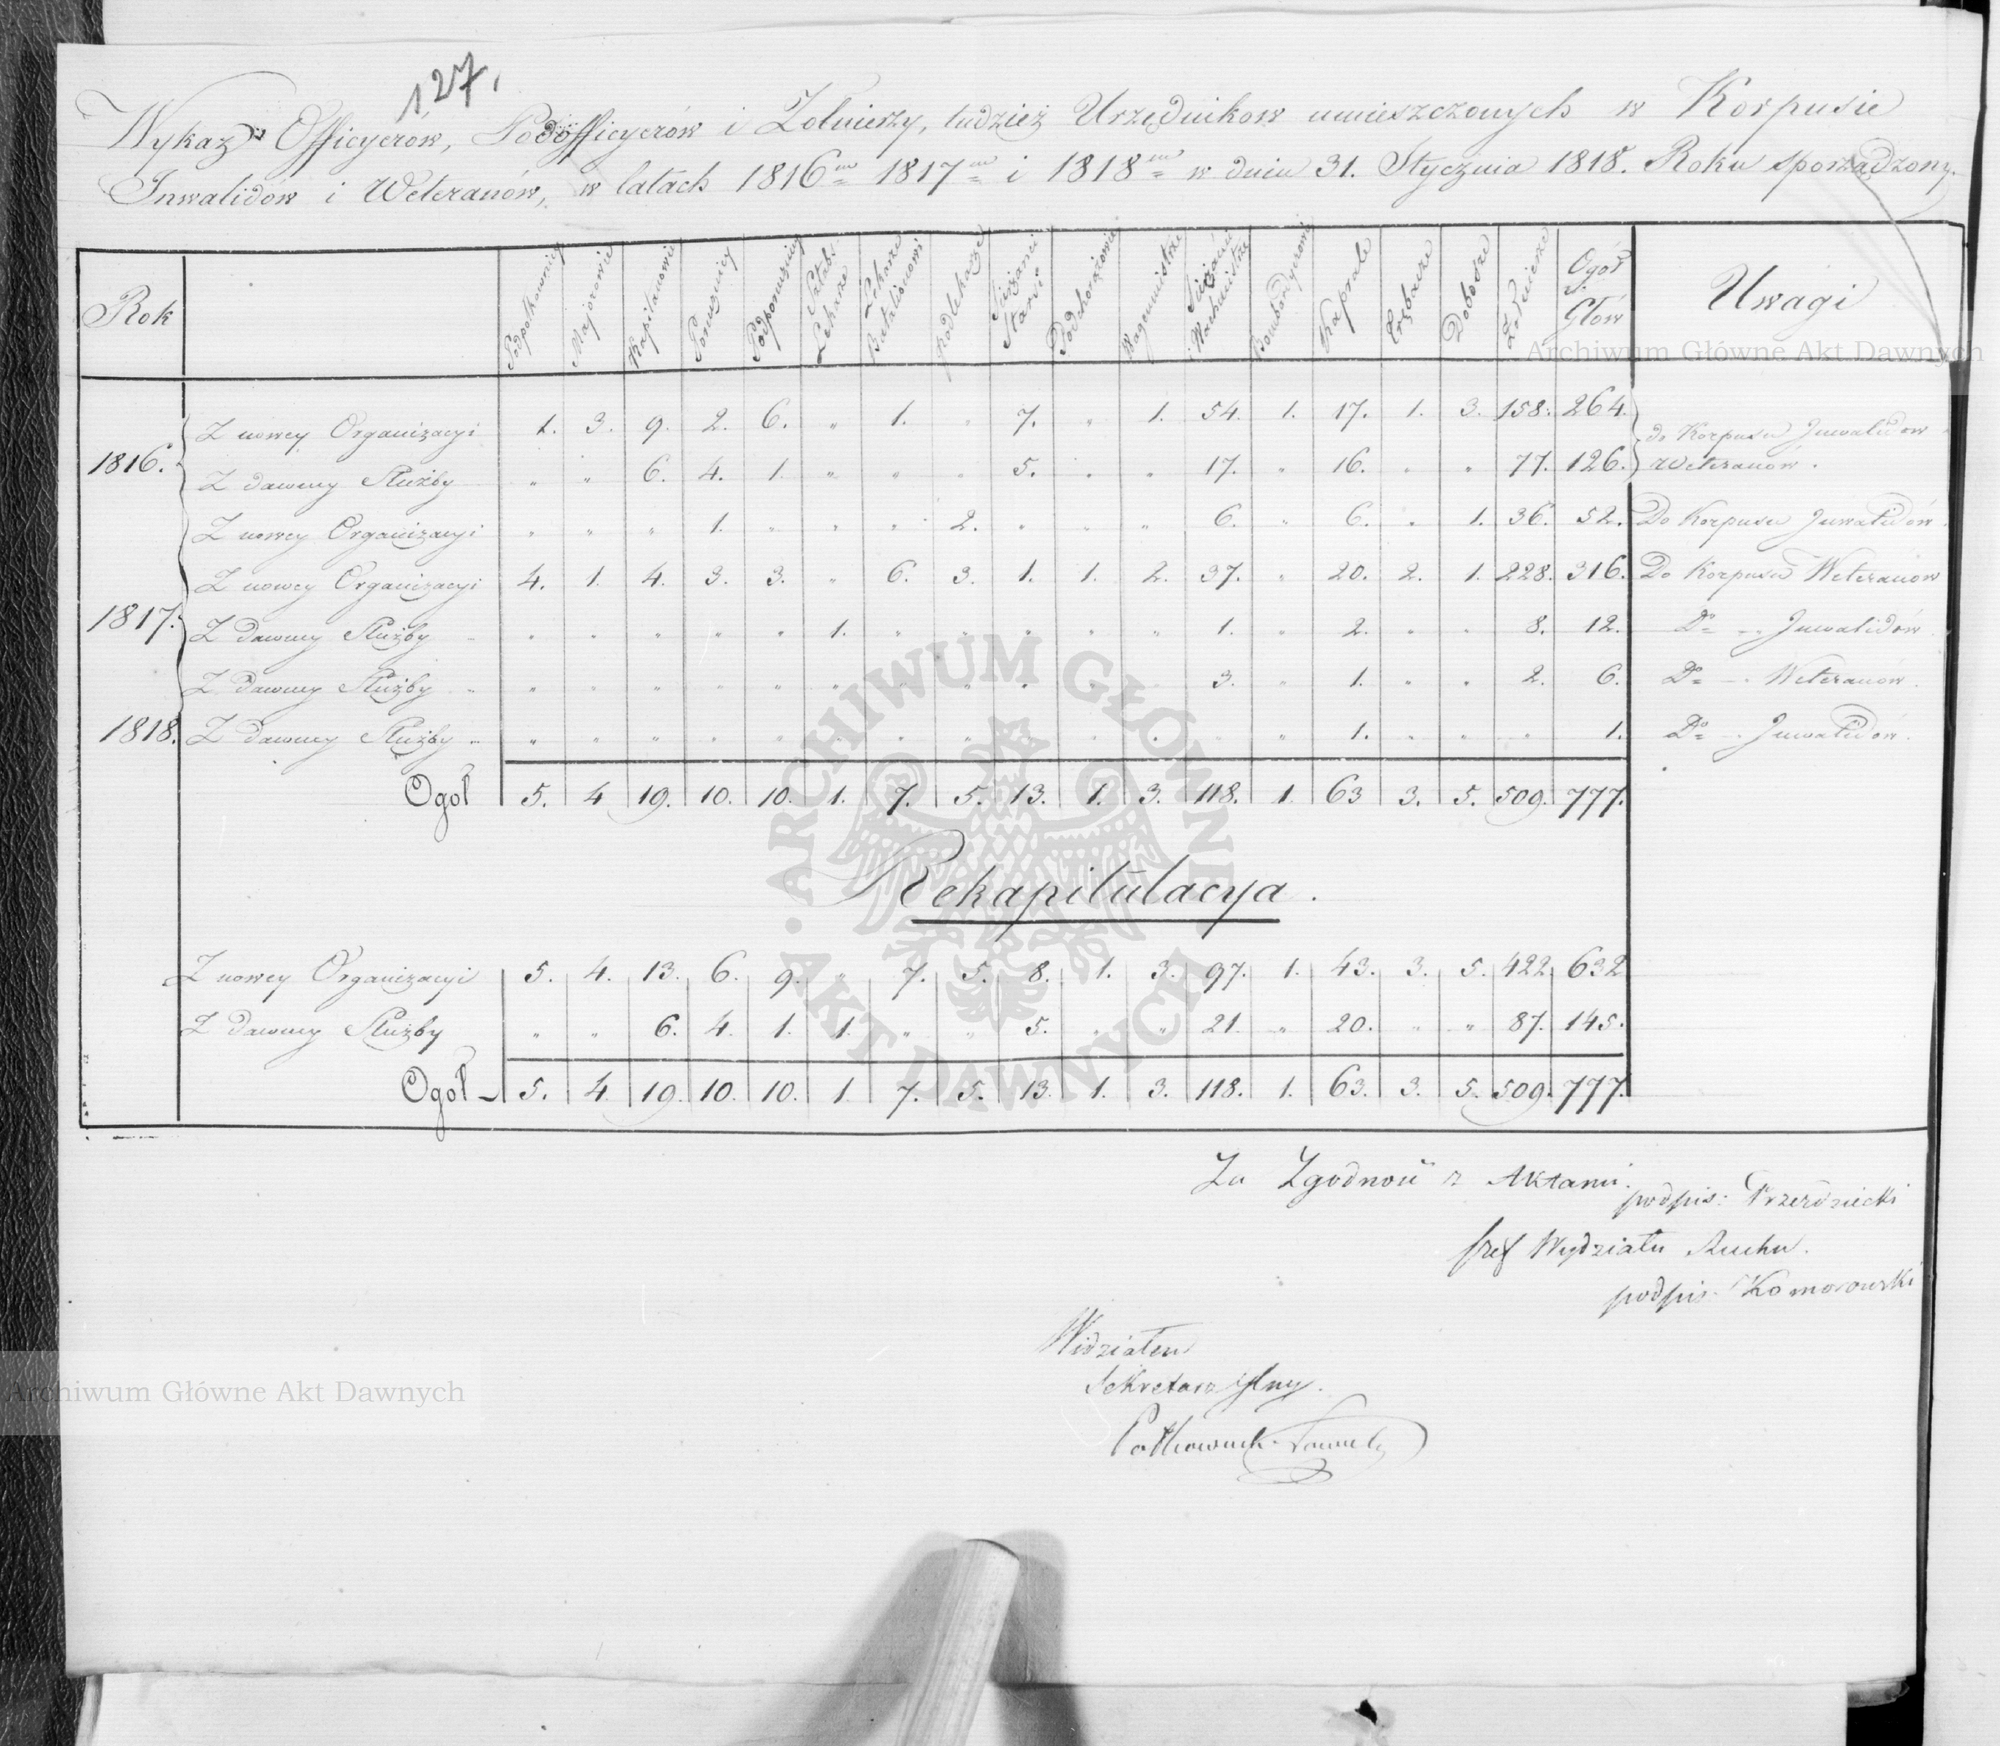 127.
Wykaz Officyerów, Podofficyerów i Zołnierzy, tudzież Urzędnikow umieszczonych w Korpusie
Inwalidów i Weteranów, w latach 1816m 1817m i 1818m w dniu 31. Stycznia 1818. Roku sporządzony.
Rok Podpołkownicy Majorowie Kapitanowie Porucznicy Podporucznicy Sztabs Lekarze Lekarze Batalionowi Podlekarze Sierżanci Starsi Podchorążowie Wagenmistrze Sierżanci i Wachmistrze Bombardyerowie Kaprale Trębacze Dobosze Zołnierze Ogół Głów Uwagi
1816. Z nowey Organizacyi 1. 3. 9. 2. 6. " 1. " 7. " 1. 54. 1. 17. 1. 3. 158. 264. do Korpusu Inwalidow
Z dawney Służby " " 6. 4. 1. " " " 5. " " 17. " 16. " " 77. 126. Weteranów.
Z nowey Organizacyi " " " 1. " " " 2. " " " 6. " 6. " 1. 36. 52. Do Korpusu Inwalidów.
1817. Z nowey Organizacyi 4. 1. 4. 3. 3. " 6. 3. 1. 1. 2. 37. " 20. 2. 1. 228. 316. Do Korpusu Weteranów
Z dawney Służby " " " " " 1. " " " " " 1. " 2. " " 8. 12. Do Inwalidów.
Z dawney Służby " " " " " " " " " " " 3. " 1. " " 2. 6. Do Weteranów.
1818. Z dawney Służby " " " " " " " " " " " " " 1. " " " 1. Do Inwalidów.
Ogół 5. 4 19. 10. 10. 1. 7. 5. 13. 1. 3. 118. 1. 63 3. 5. 509. 777.
Rekapitulacya.
Z nowey Organizacyi 5. 4. 13. 6. 9. " 7. 5. 8. 1. 3. 97. 1. 43. 3. 5. 422. 632
Z dawney Służby " " 6. 4. 1. 1. " " 5. " " 21. " 20. " " 87. 145.
Ogół 5. 4. 19. 10. 10. 1. 7. 5. 13. 1. 3. 118. 1. 63. 3. 5. 509. 777.
Za Zgodność z Aktami.
podpis: Przezdziecki
szef Wydziału Ruchu.
podpis: Komorowski
Widziałem
Sekretarz Jlny.
Półkownik
Archiwum Główne Akt Dawnych
Archiwum Główne Akt Dawnych
ARCHIWUM GŁÓWNE • AKT DAWNYCH •